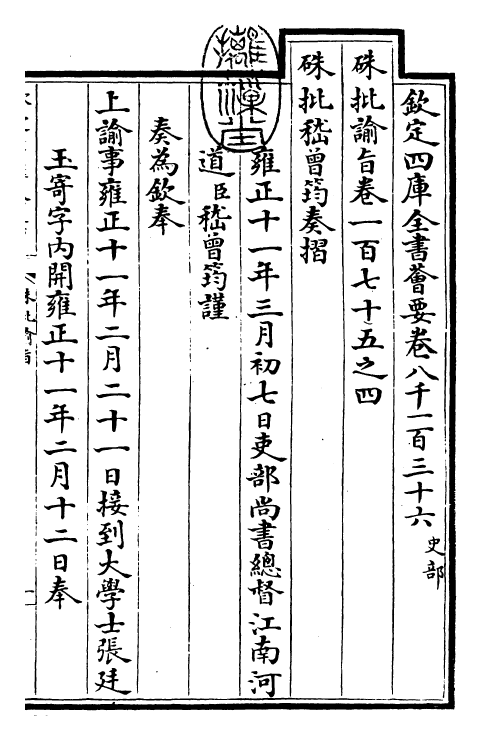 欽定四庫全書薈要卷八千一百三十六 史部
硃批諭旨卷一百七十五之四
硃批嵇曾筠奏摺
雍正十一年三月初七日吏部尚書總督江南河
道臣嵇曾筠謹
奏為欽奉
上諭事雍正十一年二月二十一日接到大學士張廷
玉寄字內開雍正十一年二月十二日奉